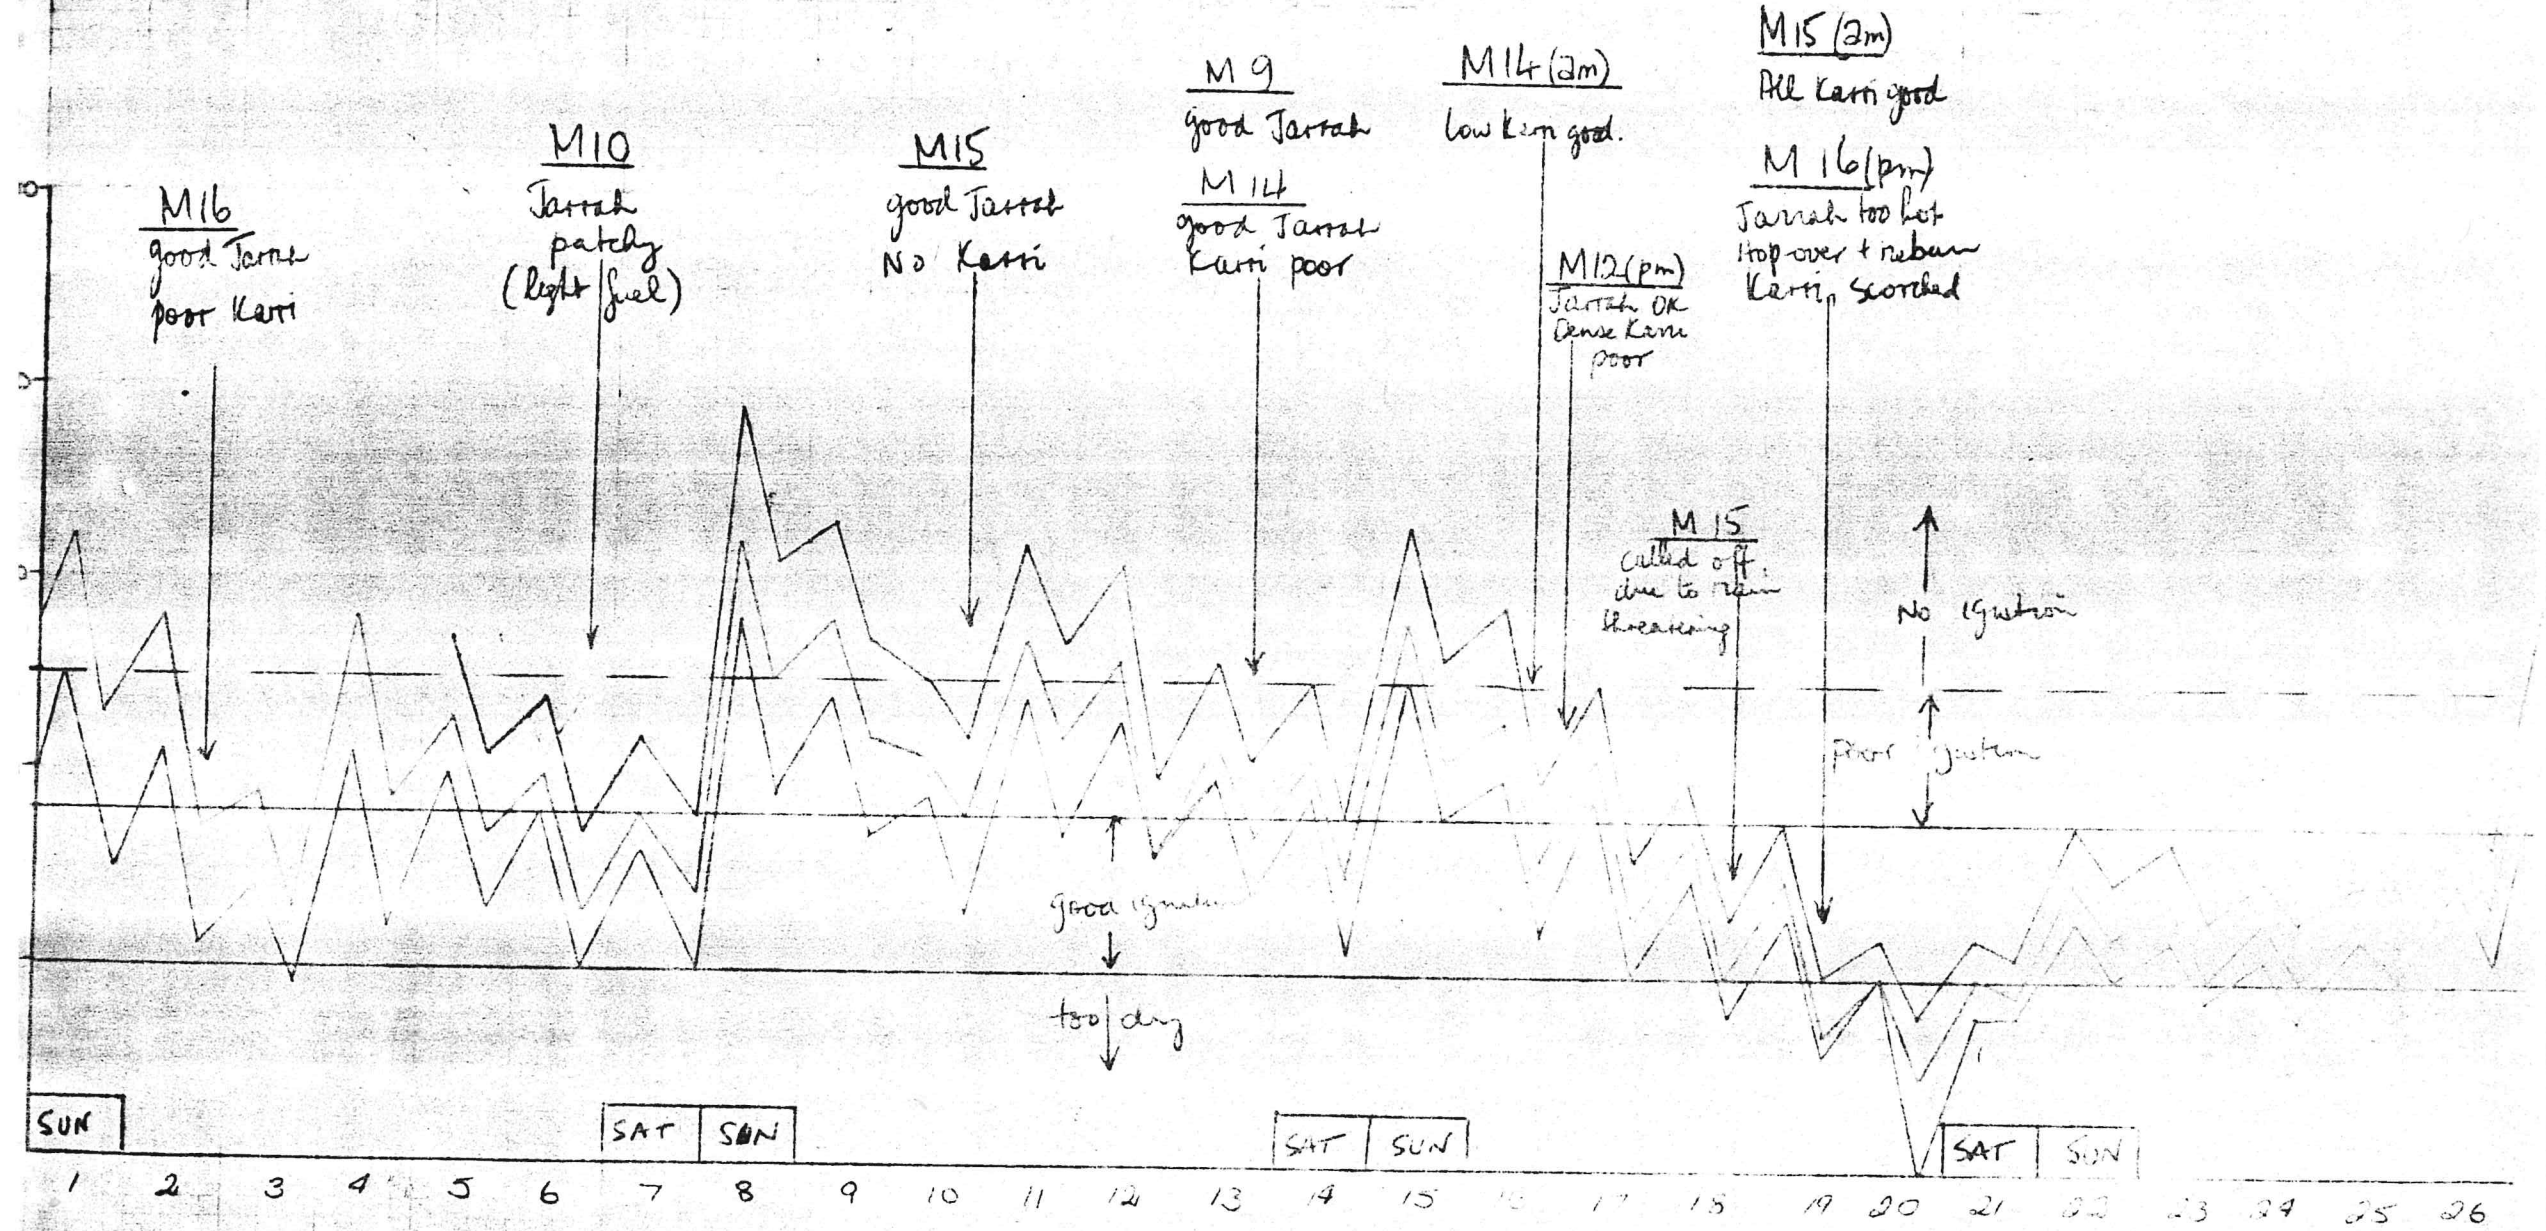 M16
good Jarrah
poor Karri
M10
Jarrah
patchy
(light fuel)
M15
good Jarrah
No Karri
M 9
good Jarrah
M 14
good Jarrah
Karri poor
M14 (am)
low Karri good.
M12 (pm)
Jarrah OK
Dense Karri
poor
M15 (am)
All Karri good
M 16 (pm)
Jarrah too hot
Hop-over + reburn
Karri scorched
M 15
called off
due to rain
threatening
No ignition
Poor ignition
good ignition
too dry
SUN
SAT SUN
SAT SUN
SAT SUN
1 2 3 4 5 6 7 8 9 10 11 12 13 14 15 16 17 18 19 20 21 22 23 24 25 26